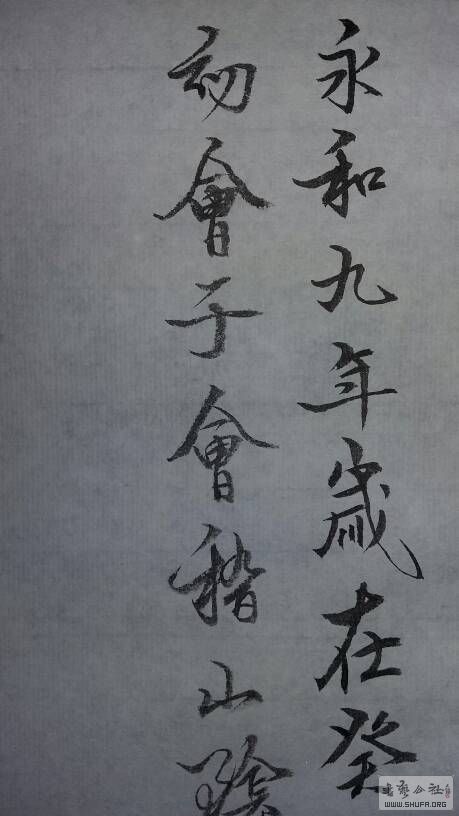 永和九年歲在癸
初會于會稽山陰
書藝公社
WWW.SHUFA.ORG